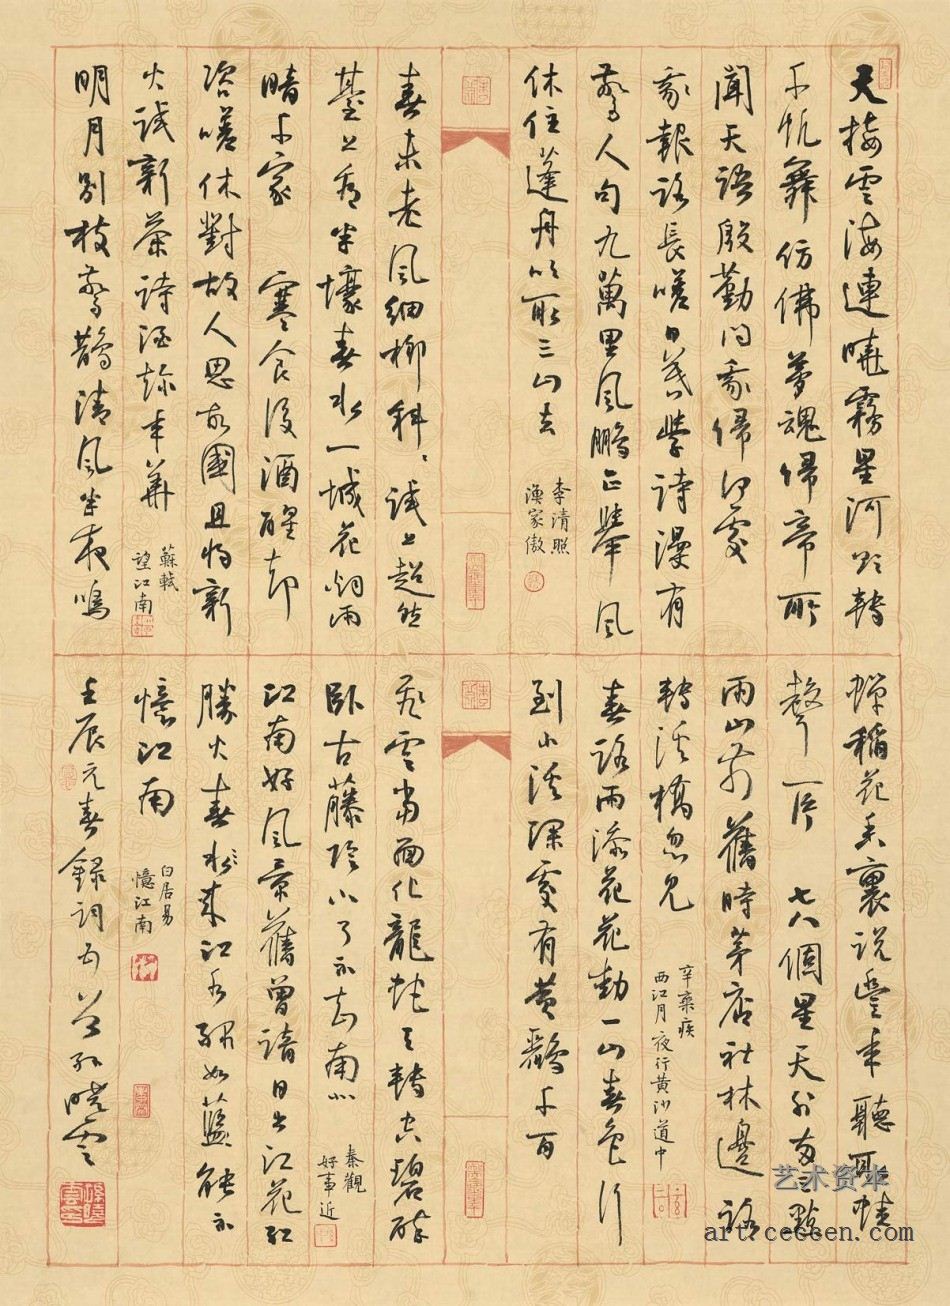 天接雲濤連曉霧星河欲轉
千帆舞仿佛夢魂歸帝所
聞天語殷勤問我歸何處
我報路長嗟日暮學詩漫有
驚人句九萬里風鵬正舉風
休住蓬舟吹取三山去
李清照
漁家傲
春未老風細柳斜〻試上超然
臺上看半壕春水一城花烟雨
暗千家 寒食後酒醒却
咨嗟休對故人思故國且將新
火試新茶詩酒趁年華
蘇軾
望江南
明月別枝驚鵲清風半夜鳴
蟬稻花香裏説豐年聽取蛙
聲一片 七八個星天外兩三點
雨山前舊時茅店社林邊路
轉溪橋忽見
辛棄疾
西江月夜行黄沙道中
春路雨添花花動一山春色行
到小溪深處有黄鸝千百
飛雲當面化龍蛇夭轉空碧醉
卧古藤陰下了不知南北
秦觀
好事近
江南好風景舊曾諳日出江花紅
勝火春來江水緑如藍能不
憶江南
白居易
憶江南
壬辰元春録詞五首孫曉雲
艺术资本
art.ceccen.com